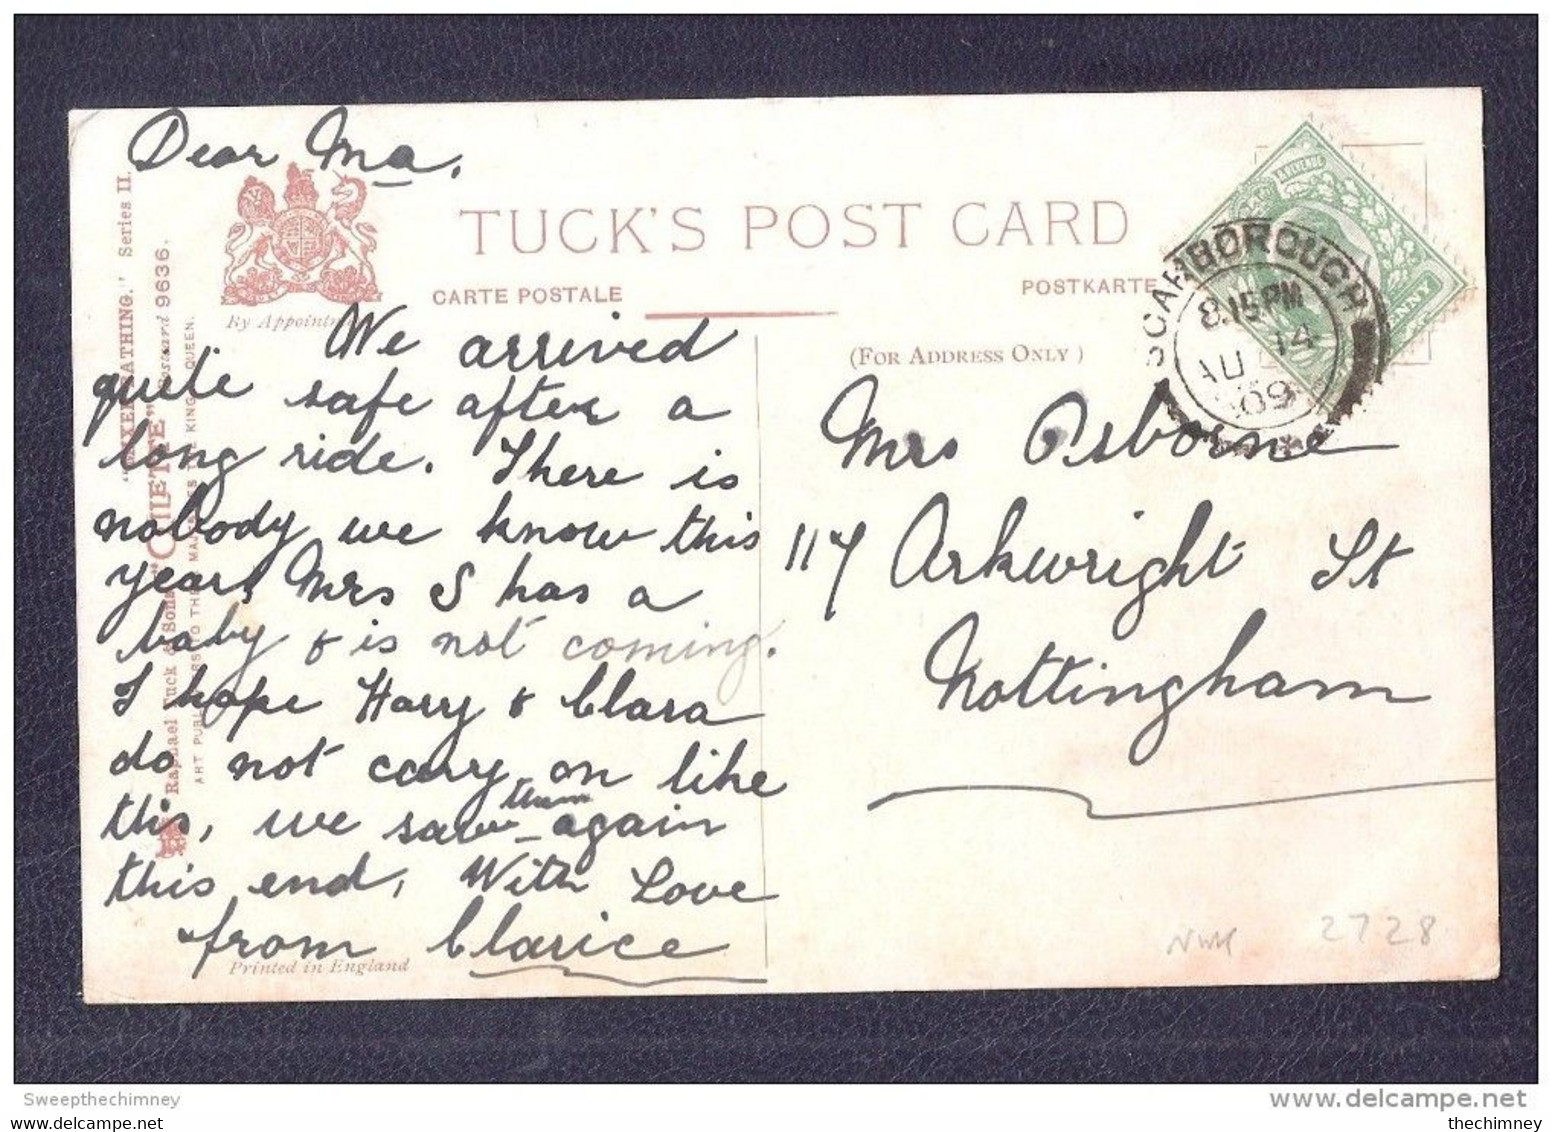 Dear Ma,
We arrived
quite safe after a
long ride. There is
nobody we know this
year, Mrs S has a
baby & is not coming.
I hope Harry & Clara
do not carry on like
this, we saw them again
this end, With Love
from Clarice
TUCK'S POST CARD
CARTE POSTALE
POSTKARTE
(FOR ADDRESS ONLY)
By Appointm
Mrs Osborne
117 Arkwright St
Nottingham
SCARBOROUGH
8.15PM
AU 14
09
Series II.
"OILETTE" Postcard 9636.
Raphael Tuck & Sons
Printed in England
2728
Sweepthechimney
delcampe.net
thechimney